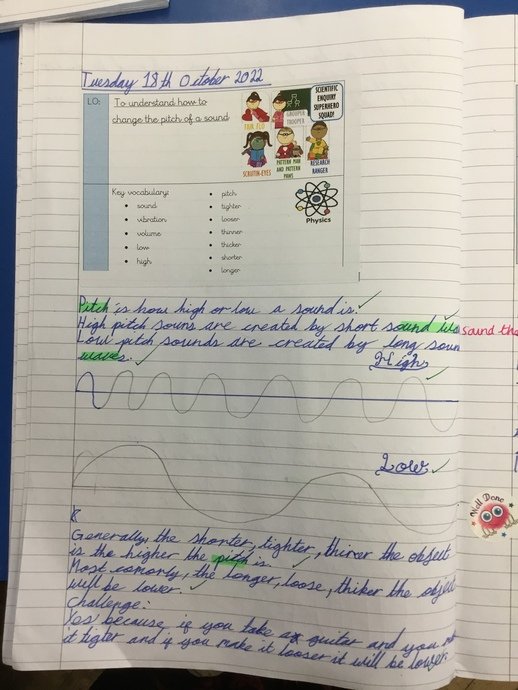 Tuesday 18th October 2022
LO: To understand how to
change the pitch of a sound
SCIENTIFIC
ENQUIRY
SUPERHERO
SQUAD!
GROUPER
TROOPER
SCRUTIN-EYES
PATTERN MAN
AND PATTERN
PAWS
RESEARCH
RANGER
Key vocabulary:
• sound
• vibration
• volume
• low
• high
• pitch
• tighter
• looser
• thinner
• thicker
• shorter
• longer
Physics
Pitch is how high or low a sound is.
High pitch souns are created by short sound wa
sound the
Low pitch sounds are created by long soun
waves.
High
Low
Well Done
Generally, the shorter, tighter, thinner the object
is the higher the pitch is.
Most comonly, the longer, loose, thiker the object
will be lower.
Challenge:
Yes because if you take a guitar and you
it tigter and if you make it looser it will be lower.